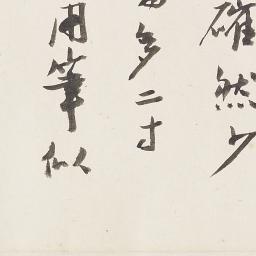 確然少
多二寸
用筆似